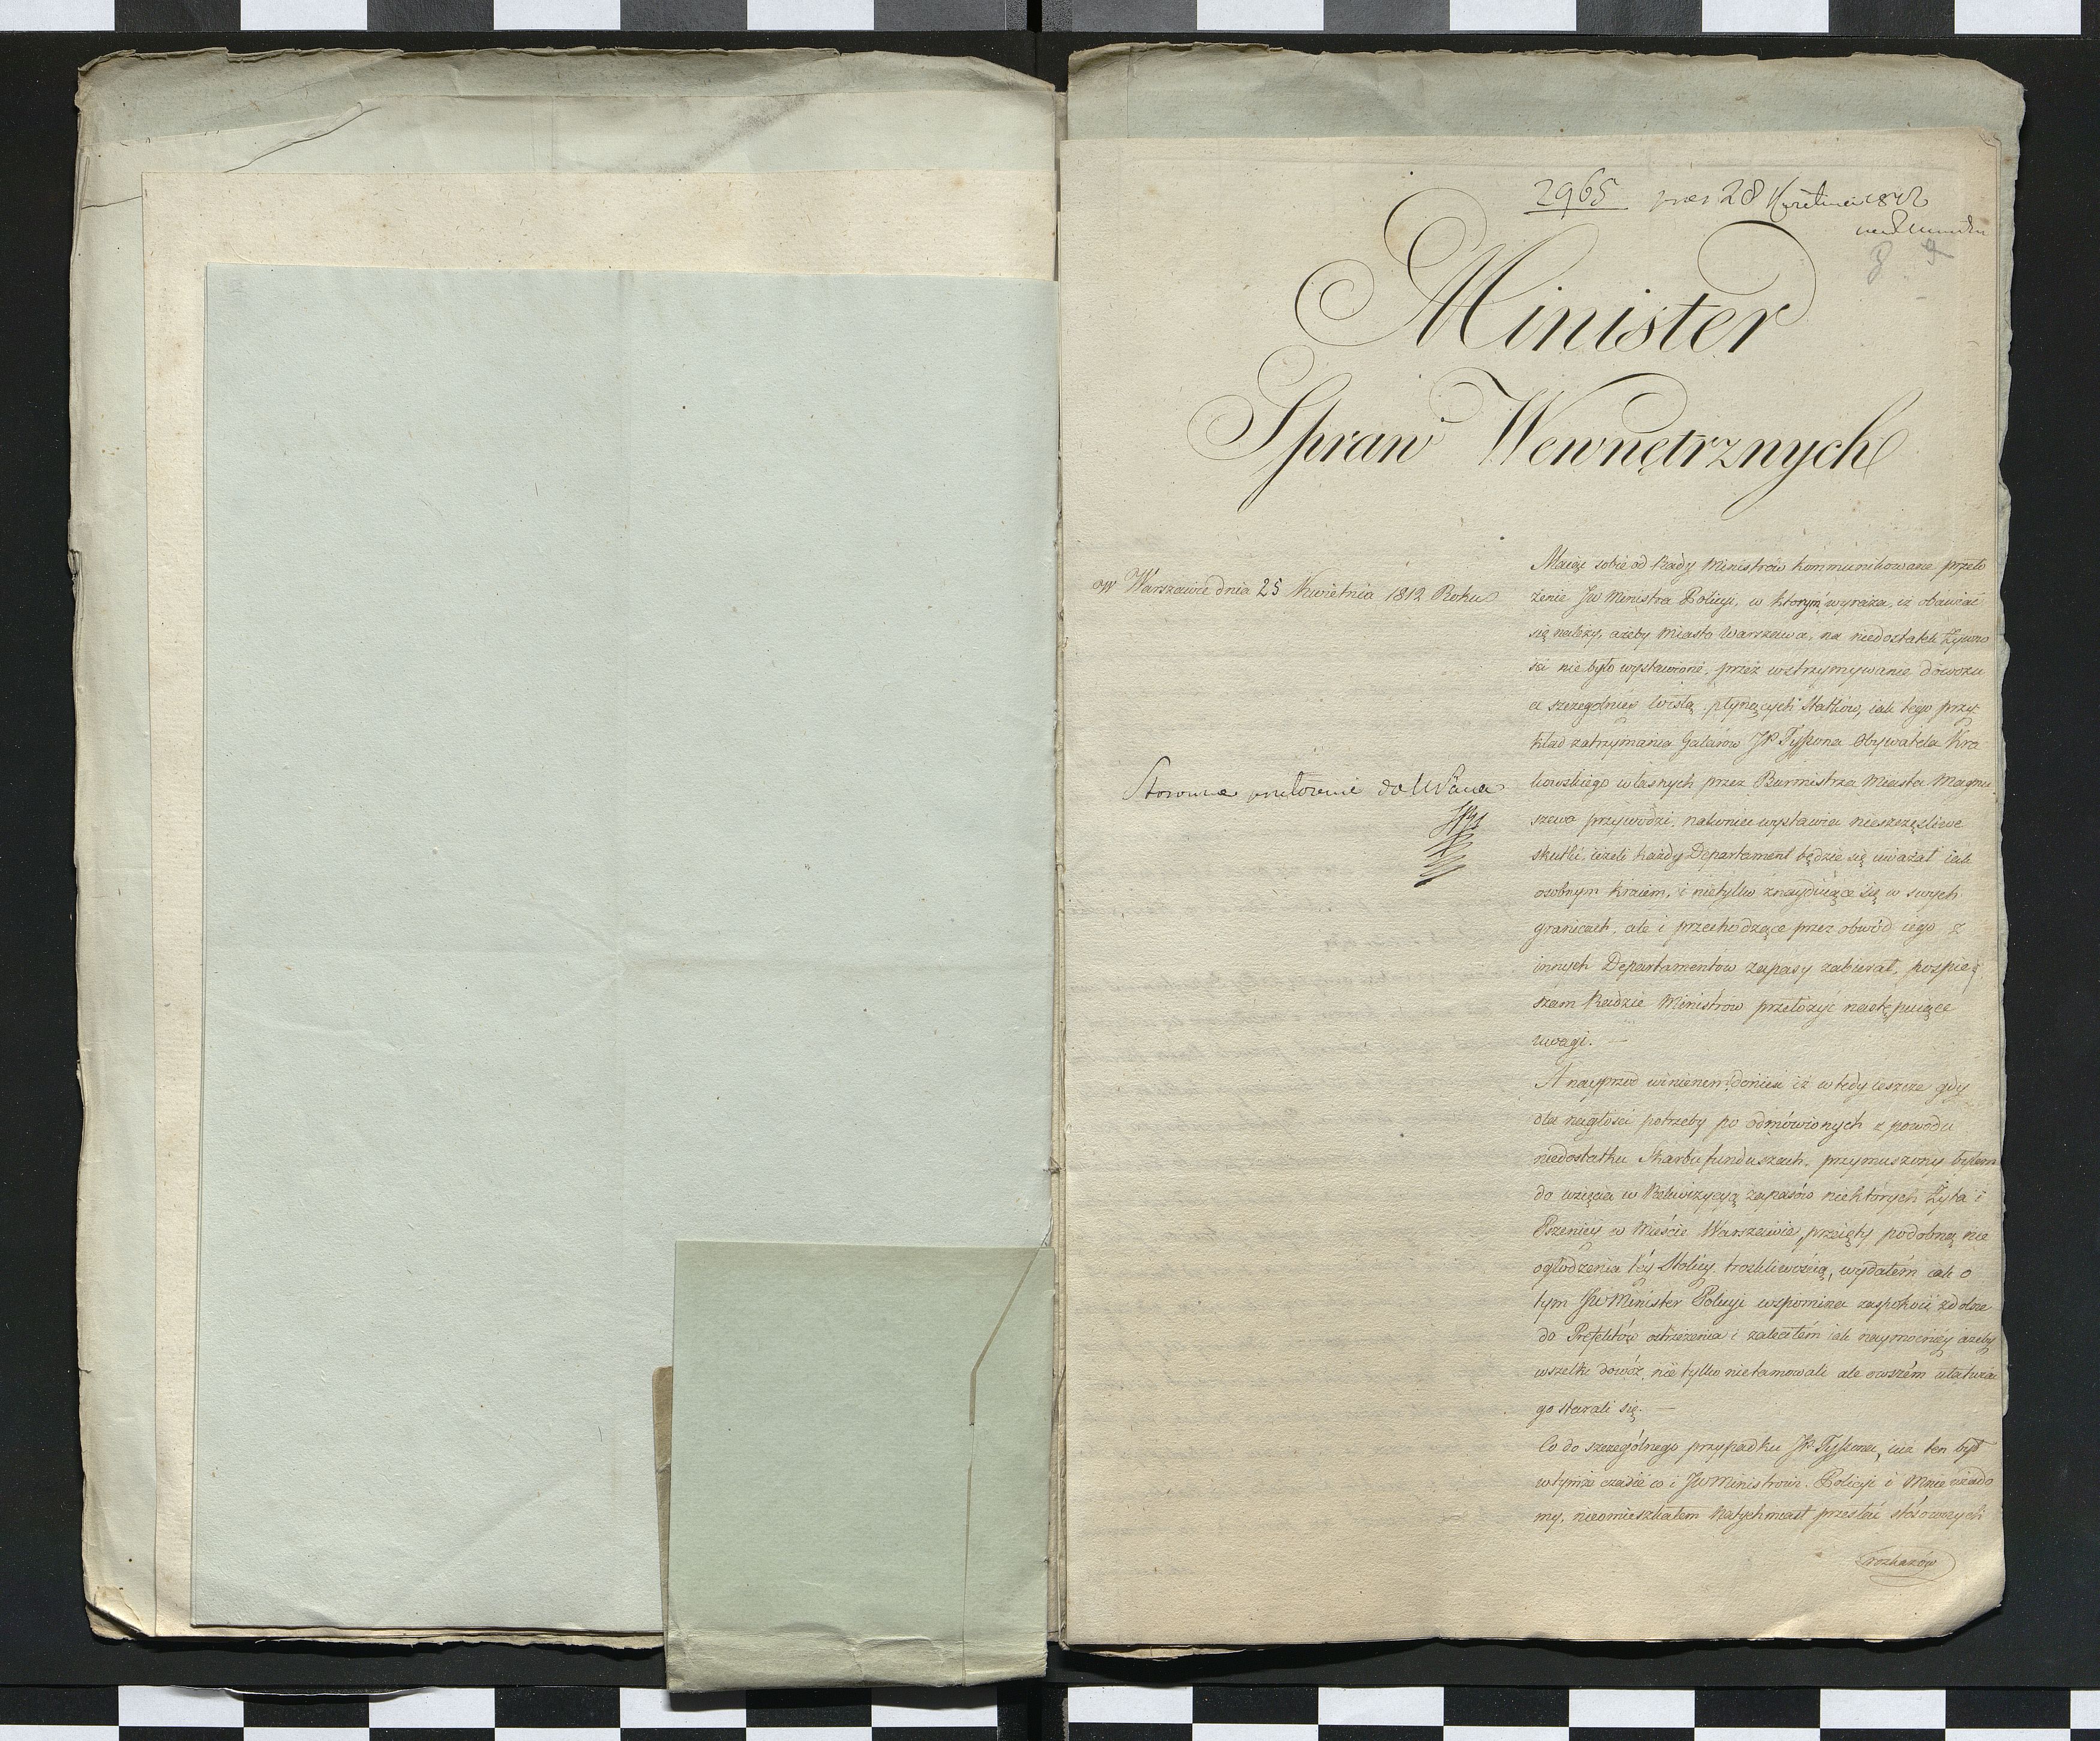 2965 pres 28 Kwietnia 1812
8 9
Minister
Spraw Wewnętrznych
w Warszawie dnia 25 Kwietnia 1812 Roku
Stosowne przełożenie do
Maiąc sobie od Rady Ministrów kommunikowane przeło
żenie JW Ministra Policyi, w którym wyraża, iż obawiać
się należy, ażeby Miasto Warszawa, na niedostatek żywno
ści nie było wystawione, przez wstrzymywanie dowozu
a szczegolniey Wisłą płynących Statków, iak tego przy
kład zatrzymania Galarów JP Tyssona Obywatela Kra
kowskiego własnych przez Burmistrza Miasta Magnu
szewa przywodzi, nakoniec wystawia nieszczęśliwe
skutki, ieżeli każdy Departament będzie się uważał iak
osobnym kraiem, i nietylko znayduiące się w swych
granicach, ale i przechodzące przez obwód iego z
innych Departamentow zapasy zabierał, pospie
szam Radzie Ministrow przełożyć następuiące
uwagi. —
A nayprzod winienem donieść iż wtedy ieszcze gdy
dla nagłości potrzeby po odmówionych z powodu
niedostatku Skarbu funduszach, przymuszony byłem
do wzięcia w Rekwizycyą zapasów niektórych Żyta i
Pszenicy w Mieście Warszawie, przeięty podobną nie
ogłodzenia téy Stolicy troskliwością, wydałém iak o
tym JW Minister Policyi wspomina zaspokoić zdolne
do Prefektów ostrzeżenia i zaleciłém iak naymocniéy ażeby
wszelki dowóz, nie tylko nietamowali ale owszém ułatwia
go starali się. —
Co do szczególnego przypadku JP. Tyssona, iuż ten był
wtymże czasie co i JW Ministrowi Policyi i Mnie wiado
my, nieomieszkałem natychmiast przesłać stósownych
rozkazów